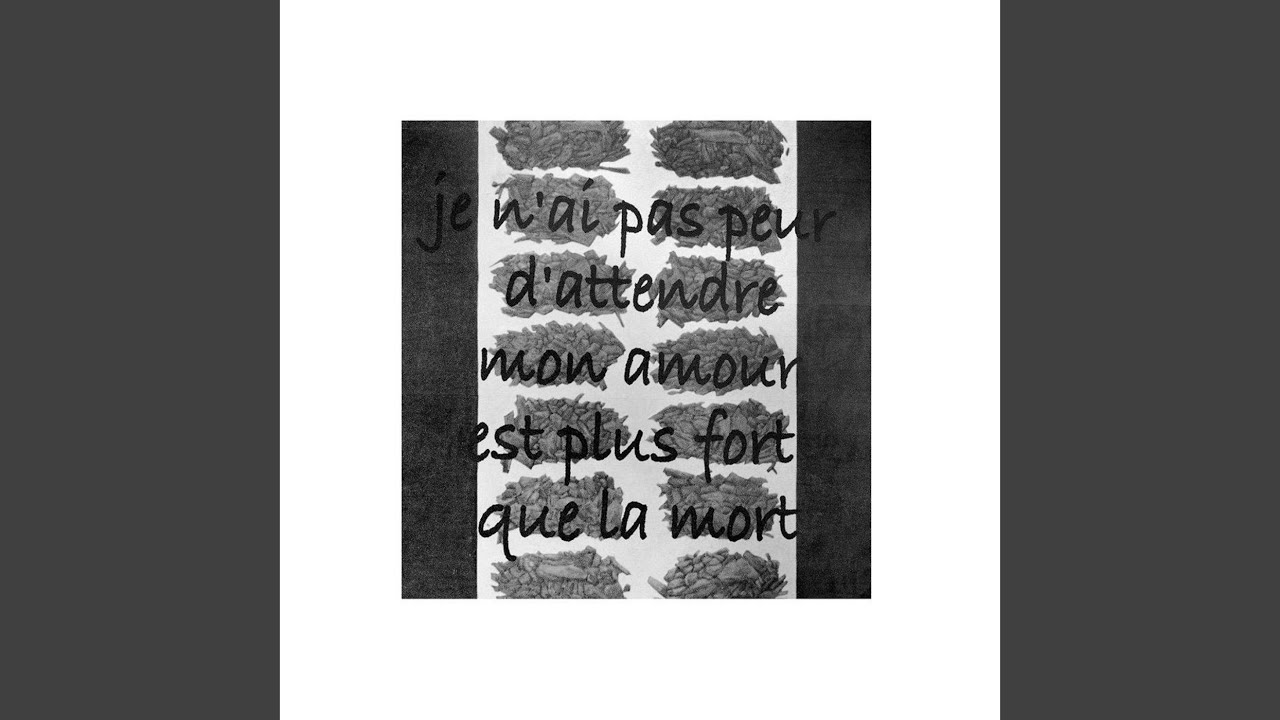 je n'ai pas peur
d'attendre
mon amour
est plus fort
que la mort